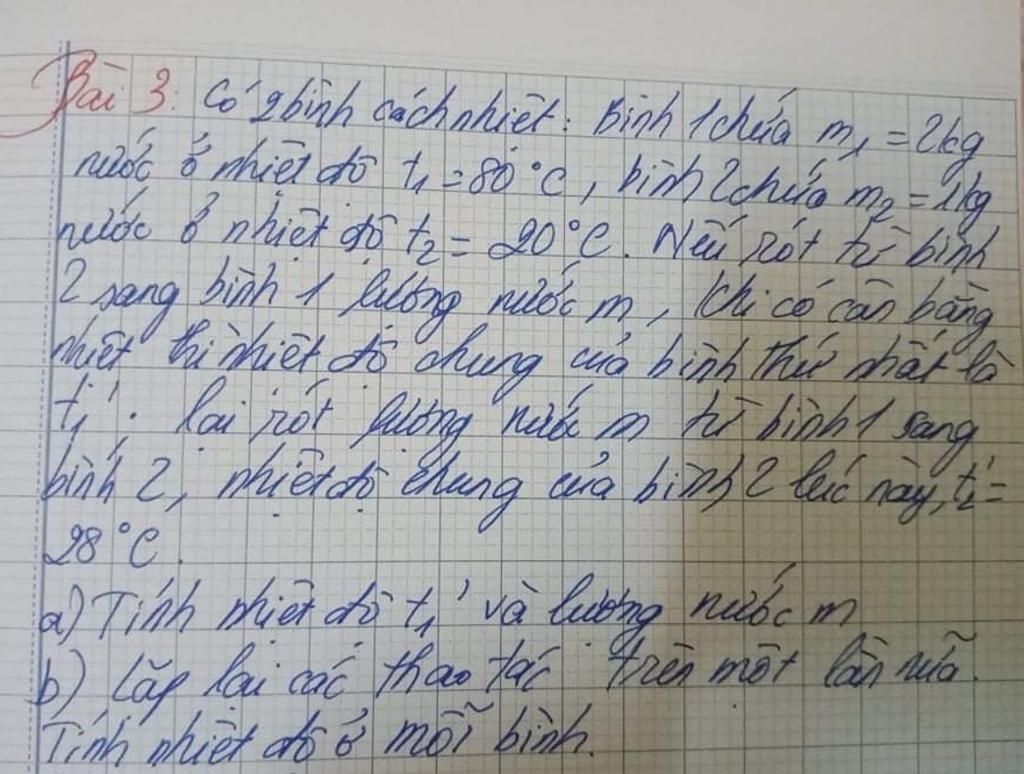 Bài 3: Có 2 bình cách nhiệt: Bình 1 chứa m₁ = 2kg
nước ở nhiệt độ t₁ = 80°C, bình 2 chứa m₂ = 1kg
nước ở nhiệt độ t₂ = 20°C. Nếu rót từ bình
2 sang bình 1 lượng nước m, khi có cân bằng
nhiệt thì nhiệt độ chung của bình thứ nhất là
t₁'. lại rót lượng nước m từ bình 1 sang
bình 2, nhiệt độ chung của bình 2 lúc này, t₂' =
28°C.
a) Tính nhiệt độ t₁' và lượng nước m
b) Lặp lại các thao tác trên một lần nữa.
Tính nhiệt độ ở mỗi bình.